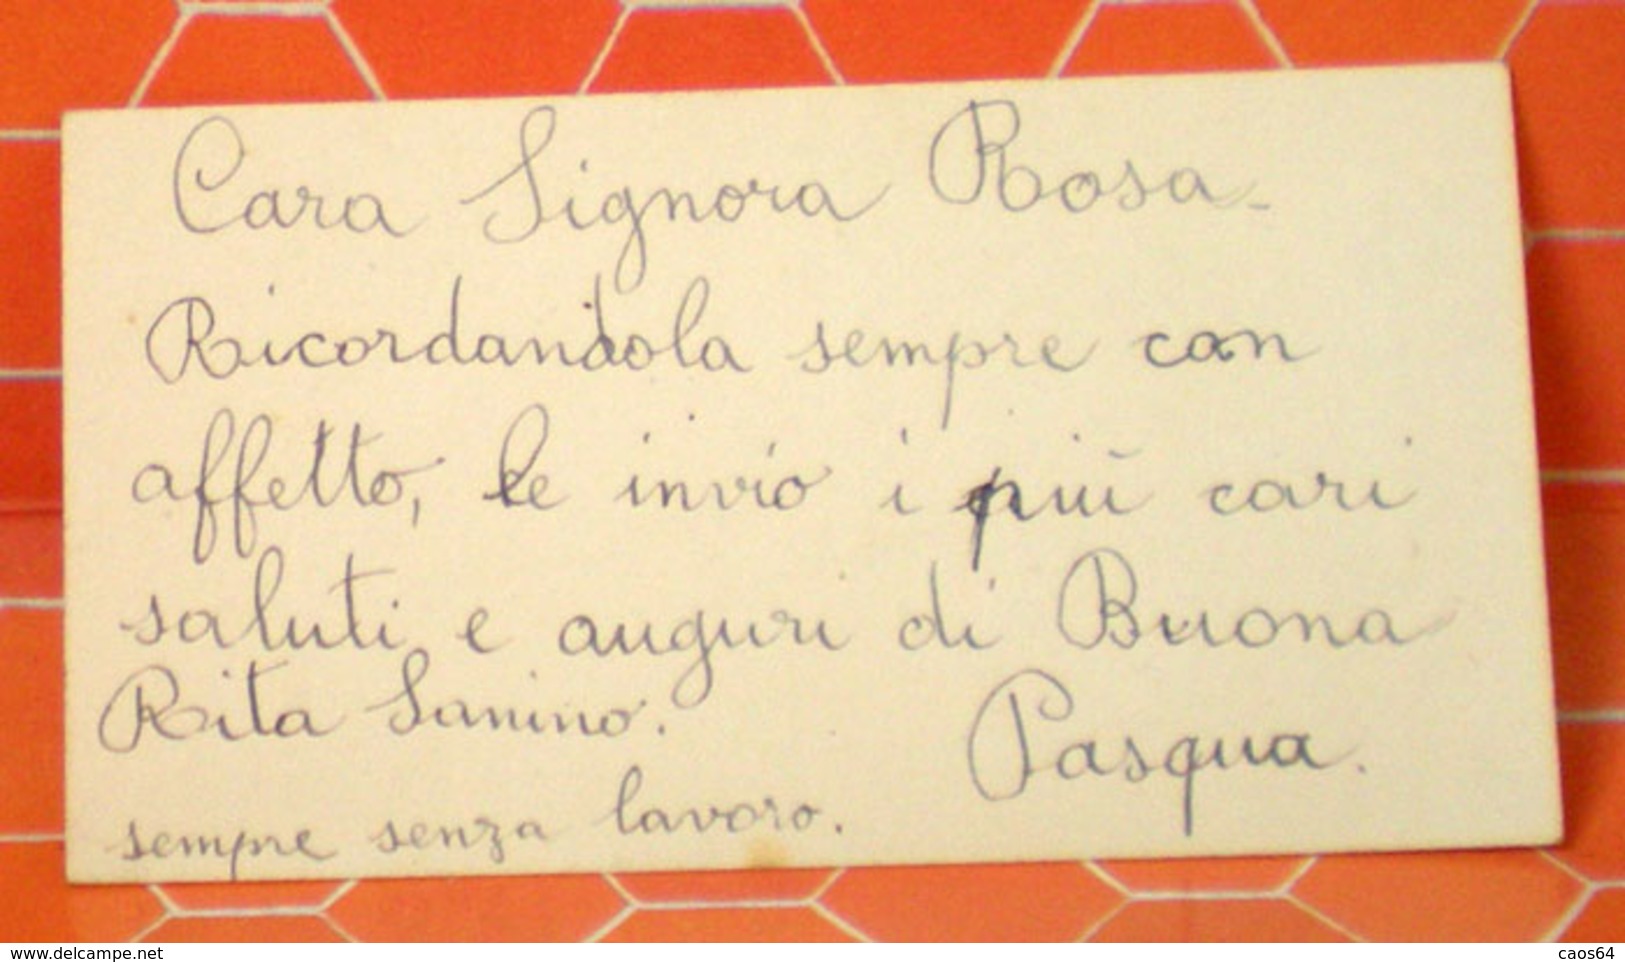 Cara Signora Rosa-
Ricordandola sempre con
affetto, le invio i più cari
saluti e auguri di Buona
Pasqua.
Rita Sanino.
sempre senza lavoro.
www.delcampe.net
caos64